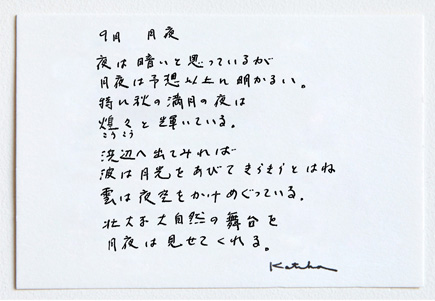 9月　月夜
夜は暗いと思っているが
月夜は予想以上に明かるい。
特に秋の満月の夜は
煌々と輝いている。
こうこう
浜辺へ出てみれば
波は月光をあびてきらきらとはね
雲は夜空をかけめぐっている。
壮大な大自然の舞台を
月夜は見せてくれる。